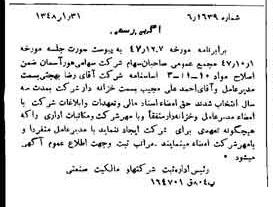 شماره ۶٫۱۶۳۹ ۱۳۴۸٫۱٫۳۱
آگهی رسمی
برابرنامه مورخه ۴۷٫۱۲٫۷ به پیوست صورت جلسه مورخه
۴۷٫۱۰٫۱ مجمع عمومی صاحبان سهام شرکت سهامی هورآسمان ضمن
اصلاح مواد ۱۰ـ۱۱ـ۳ اساسنامه شرکت آقای رضا بهجتی بسمت
مدیرعامل و آقای احمد علی مجیب بسمت خزانه دار شرکت بمدت سه
سال انتخاب شدند حق امضاء اسناد مالی و تعهدات و ابلاغات شرکت با
مدیرعامل و خزانه دار متفقاً و با مهر شرکت و مکاتبات اداری را که
هیچگونه تعهدی برای شرکت ایجاد ننماید با مدیرعامل منفردا و
بامهر شرکت امضاء مینمایند مراتب ثبت وجهت اطلاع عموم آگهی
میشود
رئیس اداره ثبت شرکتها و مالکیت صنعتی